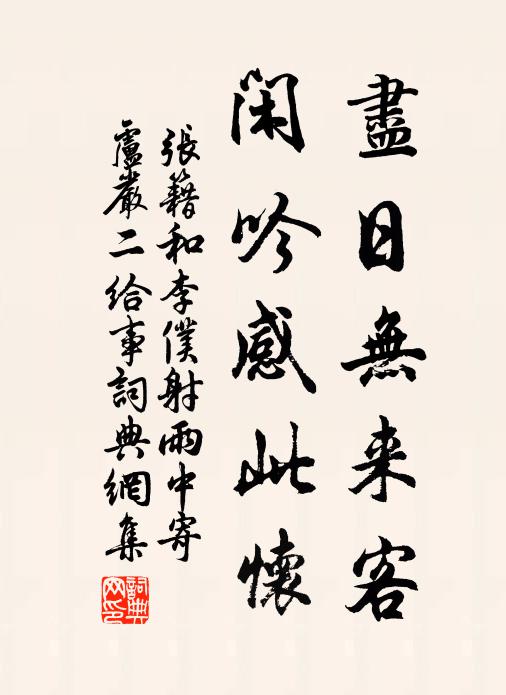 盡日無来客
閑吟感此懷
張籍和李僕射雨中寄
盧嚴二給事詞典網集
詞典網印